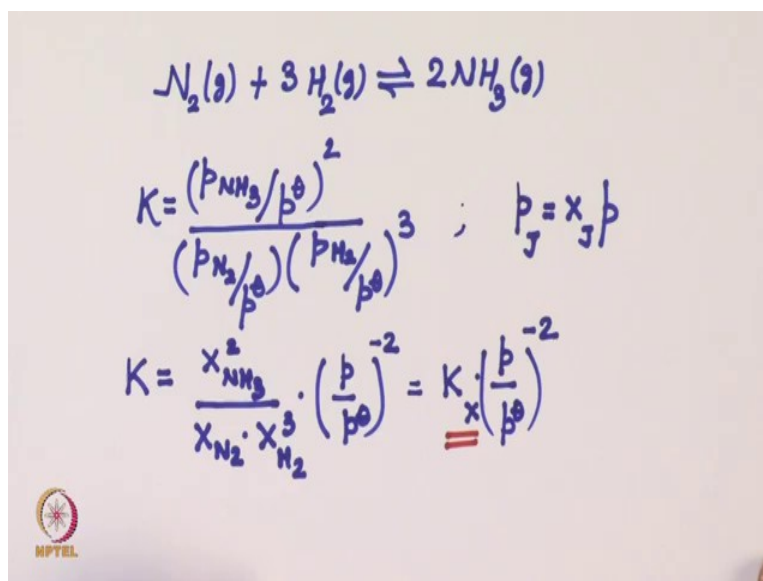 N₂(g) + 3 H₂(g) ⇌ 2 NH₃(g)
K = (p_NH₃/p^⊖)² / (p_N₂/p^⊖)(p_H₂/p^⊖)³ ; p_J = x_J p
K = x²_NH₃ / x_N₂ · x³_H₂ · (p/p^⊖)⁻² = K_x · (p/p^⊖)⁻²
NPTEL